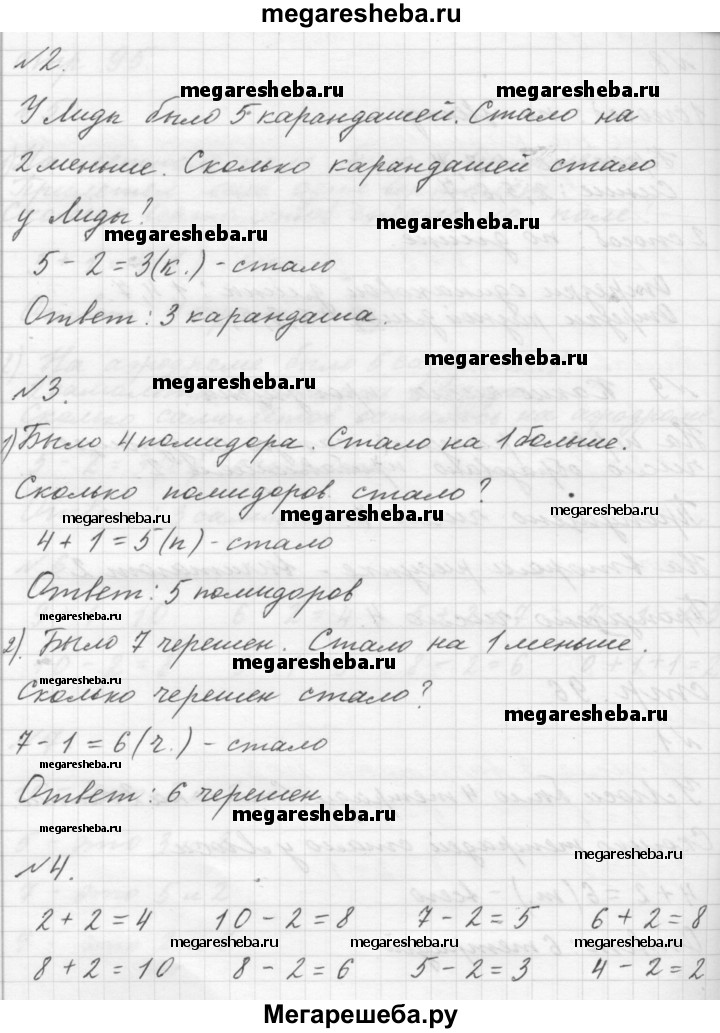 megaresheba.ru
№2.
megaresheba.ru megaresheba.ru
У Лиды было 5 карандашей. Стало на
2 меньше. Сколько карандашей стало
у Лиды?
megaresheba.ru megaresheba.ru
5 - 2 = 3 (к.) - стало
Ответ: 3 карандаша.
megaresheba.ru
№3.
1) Было 4 помидора. Стало на 1 больше.
Сколько помидоров стало?
megaresheba.ru megaresheba.ru megaresheba.ru
4 + 1 = 5 (п) - стало
Ответ: 5 помидоров
megaresheba.ru
2). Было 7 черешен. Стало на 1 меньше.
megaresheba.ru
megaresheba.ru
Сколько черешен стало?
megaresheba.ru
7 - 1 = 6 (ч.) - стало
megaresheba.ru
Ответ: 6 черешен
megaresheba.ru
megaresheba.ru
№4.
2 + 2 = 4 10 - 2 = 8 7 - 2 = 5 6 + 2 = 8
megaresheba.ru megaresheba.ru megaresheba.ru
8 + 2 = 10 8 - 2 = 6 5 - 2 = 3 4 - 2 = 2
Мегарешеба.ру